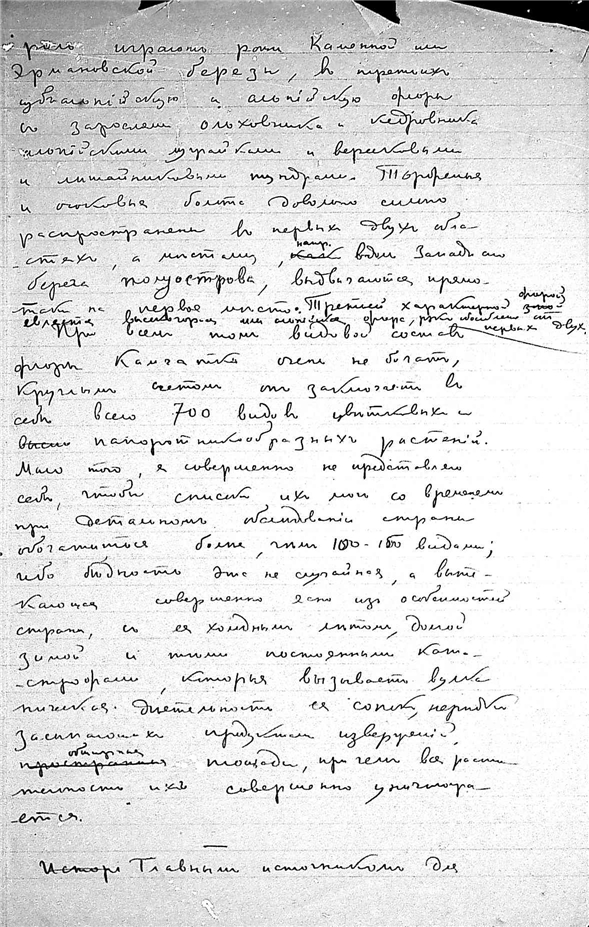 играютъ рощи Каменной или
Эрмановской березы, въ третьихъ
субальпійскую и альпійскую флоры
съ зарослями ольховника и кедровника
альпійскими лужайками и вересковыми
и лишайниковыми тундрами. Торфяныя
и осоковыя болота довольно сильно
распространены въ первыхъ двухъ обла-
стяхъ, а мѣстами, напр. вдоль Западнаго
берега полуострова, выдвигаются прямо-
таки на первое мѣсто. Третьей характерной флорой
является высокогорная или альпійская флора, рѣзко отъ
первыхъ двухъ.
При всемъ томъ видовой составъ
флоры Камчатки очень не богатъ,
круглымъ счетомъ онъ заключаетъ въ
себѣ всего 700 видовъ цвѣтковыхъ и
папоротникообразныхъ растеній.
Мало того, я совершенно не представляю
себѣ, чтобы списокъ ихъ могъ со временемъ
при детальномъ обслѣдованіи страны
обогатиться болѣе, чѣмъ 100-150 видами;
ибо бѣдность эта не случайная, а выте-
кающая совершенно ясно изъ особенностей
страны, съ ея холоднымъ лѣтомъ, долгой
зимой и тѣми постоянными ката-
строфами, которыя вызываетъ вулка
ническая дѣятельность ея сопокъ, нерѣдко
засыпающихъ продуктами изверженій,
обширныя площади, при чемъ вся расти
тельность ихъ совершенно уничтожа-
ется.
Исторі Главнымъ источникомъ для